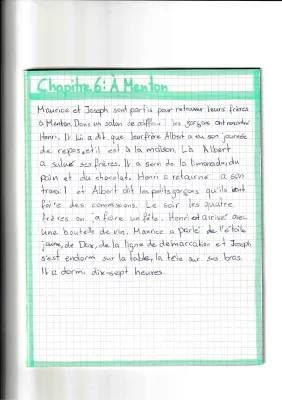 Chapitre 6: À Menton
Maurice et Joseph sont partis pour retrouver leurs frères
à Menton. Dans un salon de coiffure les garçons ont rencontré
Henri. Il Lí a dit que leur frère Albert a eu son journée
de repos, et il est à la maison. Là Albert
a salué ses frères. Il a servi de la limonade, du
pain et du chocolat. Henri a retourné a son
travail et Albert dit les petits garçons qu'ils vont
faire des commissions. Le soir les quatre
frères on a faire un fête. Henri et arrivé avec
une bouteille de vin. Maurice a parlé de l'étoile
jaune, de Dax, de la ligne de démarcation et Joseph
s'est endormi sur la table, la tête sur ses bras.
Il a dormi dix-sept heures.